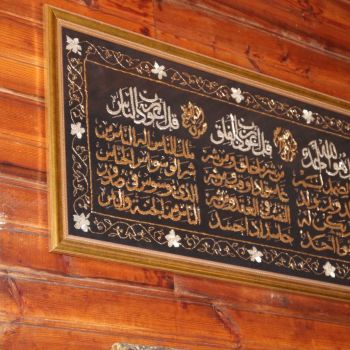 هو الله احد
الصمد لم
ولم يولد
يكن له
احد
قل اعوذ برب الفلق
من شر ما خلق ومن شر
غاسق اذا وقب ومن شر
النفاثات في العقد ومن شر
حاسد اذا حسد
قل اعوذ برب الناس
ملك الناس اله الناس من
شر الوسواس الخناس
الذي يوسوس في صدور
الناس من الجنة والناس